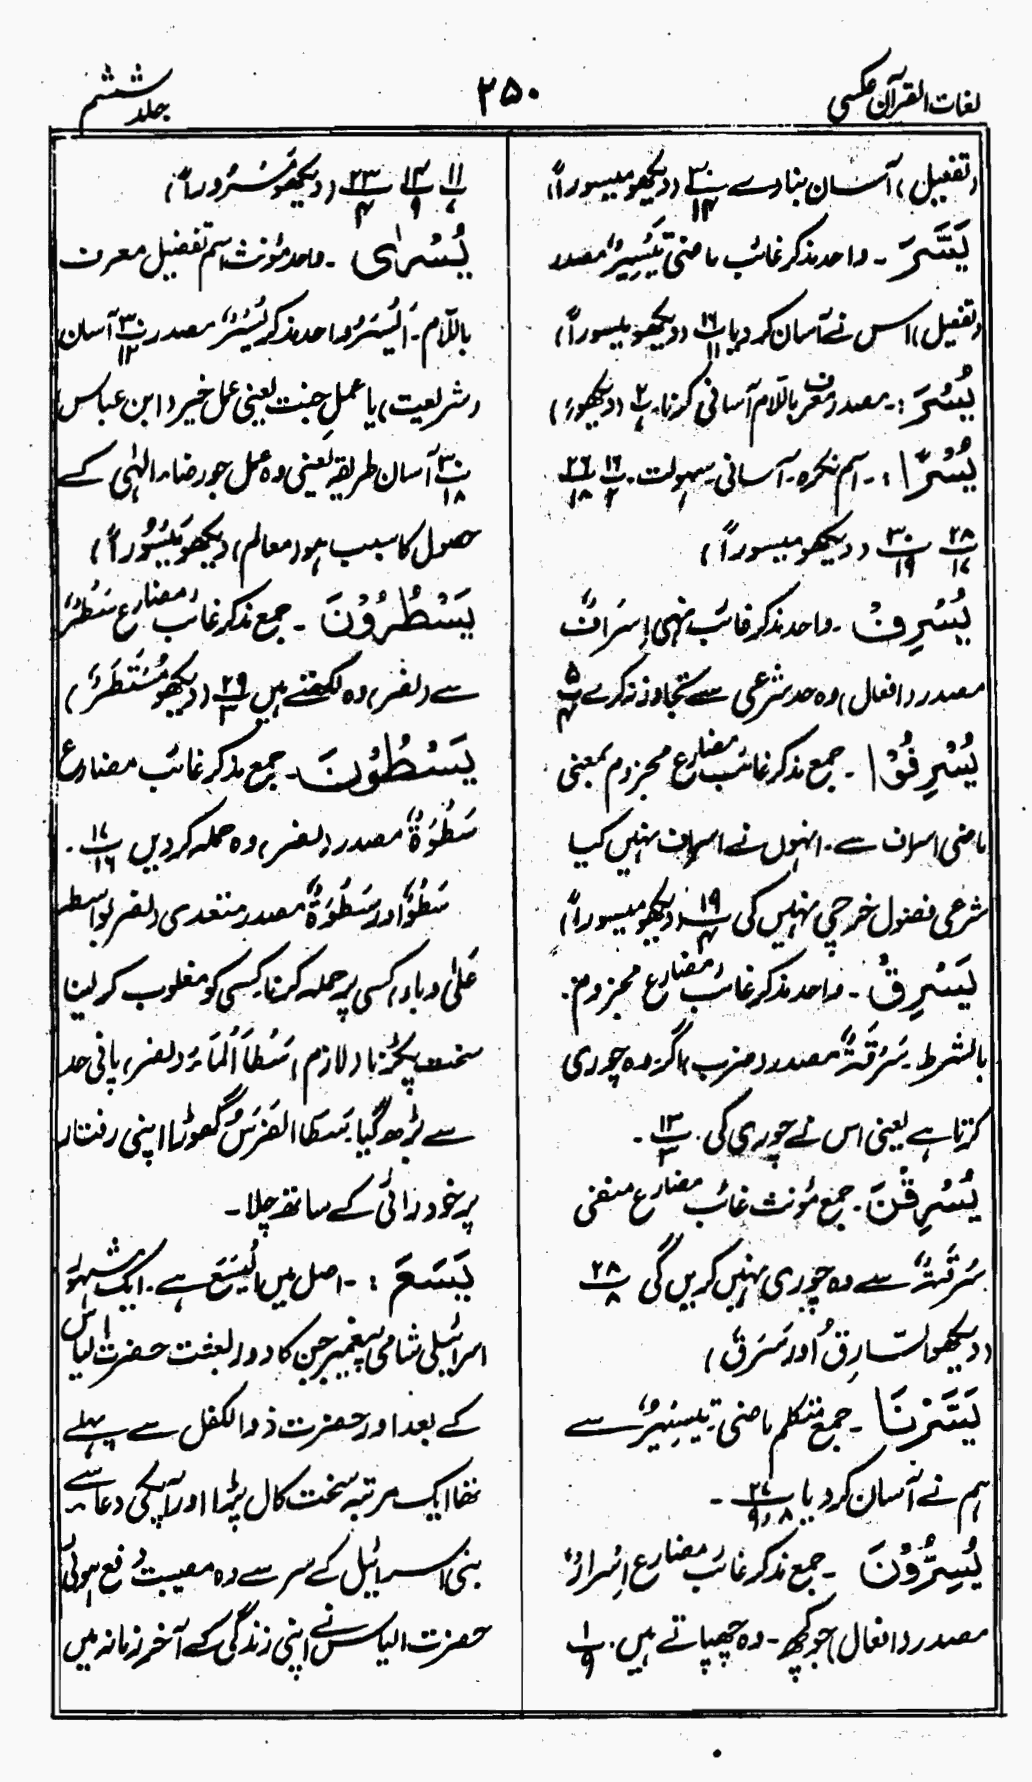 لغات القرآن عکسی
۲۵۰
جلد ششم
(تفعیل) آسان بنا دے ۳۰/۱۲ (دیکھو میسوراً)
یَسَّرَ ۔ واحد مذکر غائب ماضی تَیْسِیْرٌ مصدر
(تفعیل) اس نے آسان کر دیا ۱۶/۱۱ (دیکھو میسوراً)
یُسْرَ :۔ مصدر معرف باللّام آسانی کرنا۔ ۲/۷ (دیکھو)
یُسْرًا :۔ اسم نکرہ۔ آسانی سہولت۔ ۱۶/۲ ۲۶/۱۸
۲۸/۱۷ ۳۰/۱۹ (دیکھو میسوراً)
یُسْرِفْ ۔ واحد مذکر غائب نہی اِسْرَافٌ
مصدر (افعال) وہ حد شرعی سے تجاوز نہ کرے ۱۵/۴
یُسْرِفُوْا ۔ جمع مذکر غائب مضارع مجزوم بمعنی
ماضی اسراف سے۔ انہوں نے اسراف نہیں کیا
شرعی فضول خرچی نہیں کی ۱۹/۴ (دیکھو میسوراً)
یَسْرِقْ ۔ واحد مذکر غائب مضارع مجزوم
بالشرط۔ سَرَقَۃٌ مصدر (ضرب) اگر وہ چوری
کرتا ہے یعنی اس نے چوری کی۔ ۱۳/۳ ۔
یَسْرِقْنَ ۔ جمع مؤنث غائب مضارع منفی
سَرِقَۃٌ سے وہ چوری نہیں کریں گی ۲۸/۸
(دیکھو السَّارِقُ اور سَرَقَ)
یَسَّرْنَا ۔ جمع متکلم ماضی تَیْسِیْرٌ سے
ہم نے آسان کر دیا ۲۷/۹،۸ ۔
یُسِرُّوْنَ ۔ جمع مذکر غائب مضارع اِسْرَارٌ
مصدر (افعال) جو کچھ ۔ وہ چھپاتے ہیں۔ ۱/۹
۱۱/۷ ۱۲/۹ ۲۳/۴ (دیکھو مَسْرُوراً)
یُسْرٰی ۔ واحد مؤنث اسم تفضیل معرف
باللّام۔ اَلْیُسْرُ واحد مذکر یُسْرٌ مصدر ۳۰/۱۲ آسان
(شریعت) یا عمل جنت یعنی عمل خیر (ابن عباس
۳۰/۱۸ آسان طریقہ یعنی وہ عمل جو رضاء الٰہی کے
حصول کا سبب ہو (معالم) (دیکھو مَیْسُوْراً)
یَسْطُرُوْنَ ۔ جمع مذکر غائب مضارع سَطْرٌ
سے (نصر) وہ لکھتے ہیں ۲۹/۳ (دیکھو مُسْتَطَرٌ)
یَسْطُوْنَ ۔ جمع مذکر غائب مضارع
سَطْوَۃٌ مصدر (نصر) وہ حملہ کر دیں ۱۷/۱۶ ۔
سَطْوٌ اور سَطْوَۃٌ مصدر متعدی (نصر) بواسطہ
عَلٰی و با، کسی پر حملہ کرنا۔ کسی کو مغلوب کر لینا
سخت پکڑنا (لازم) سَطَا الْمَاءُ (نصر) پانی حد
سے بڑھ گیا۔ سَطَا الفَرَسُ گھوڑا اپنی رفتار
پر خود رائی کے ساتھ چلا۔
یَسَعَ :۔ اصل میں الْیَسَعَ ہے۔ ایک مشہور
اسرائیلی شامی پیغمبر جن کا دور بعثت حضرت الیاس
کے بعد اور حضرت ذوالکفل سے پہلے
تھا ایک مرتبہ سخت کال پڑا اور آپ کی دعا سے
بنی اسرائیل کے سر سے وہ مصیبت رفع ہوئی
حضرت الیاس نے اپنی زندگی کے آخر زمانہ میں